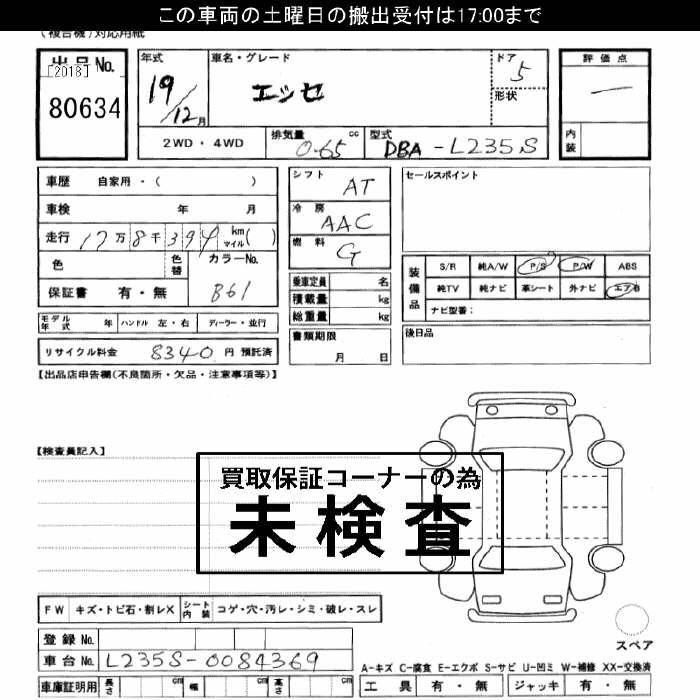 この車両の土曜日の搬出受付は17:00まで
(複合機)対応用紙
出品No.
[2018]
80634
年式
19/12月
車名・グレード
エッセ
ドア
5
形状
2WD・4WD
排気量
0.65 cc
型式
DBA-L235S
評価点
一
内装
車歴 自家用・( )
車検 年 月
走行 17万8千394 km マイル( )
色
色替
カラーNo.
B61
保証書 有・無
シフト
AT
冷房
AAC
燃料
G
乗車定員 名
積載量 kg
総重量 kg
書類期限
月 日
セールスポイント
装備品
S/R 純A/W P/S P/W ABS
純TV 純ナビ 革シート 外ナビ エアB
ナビ型番:
後日品
モデル年式 年 ハンドル 左・右 ディーラー・並行
リサイクル料金 8340 円 預託済
【出品店申告欄(不良箇所・欠品・注意事項等)】
【検査員記入】
買取保証コーナーの為
未検査
FW キズ・トビ石・割レX シート内装 コゲ・穴・汚レ・シミ・破レ・スレ
登録No.
車台No. L235S-0084369
車庫証明用 長さ cm 幅 cm 高さ cm
スペア
A-キズ C-腐食 E-エクボ S-サビ U-凹ミ W-補修 XX-交換済
工具 有・無 ジャッキ 有・無